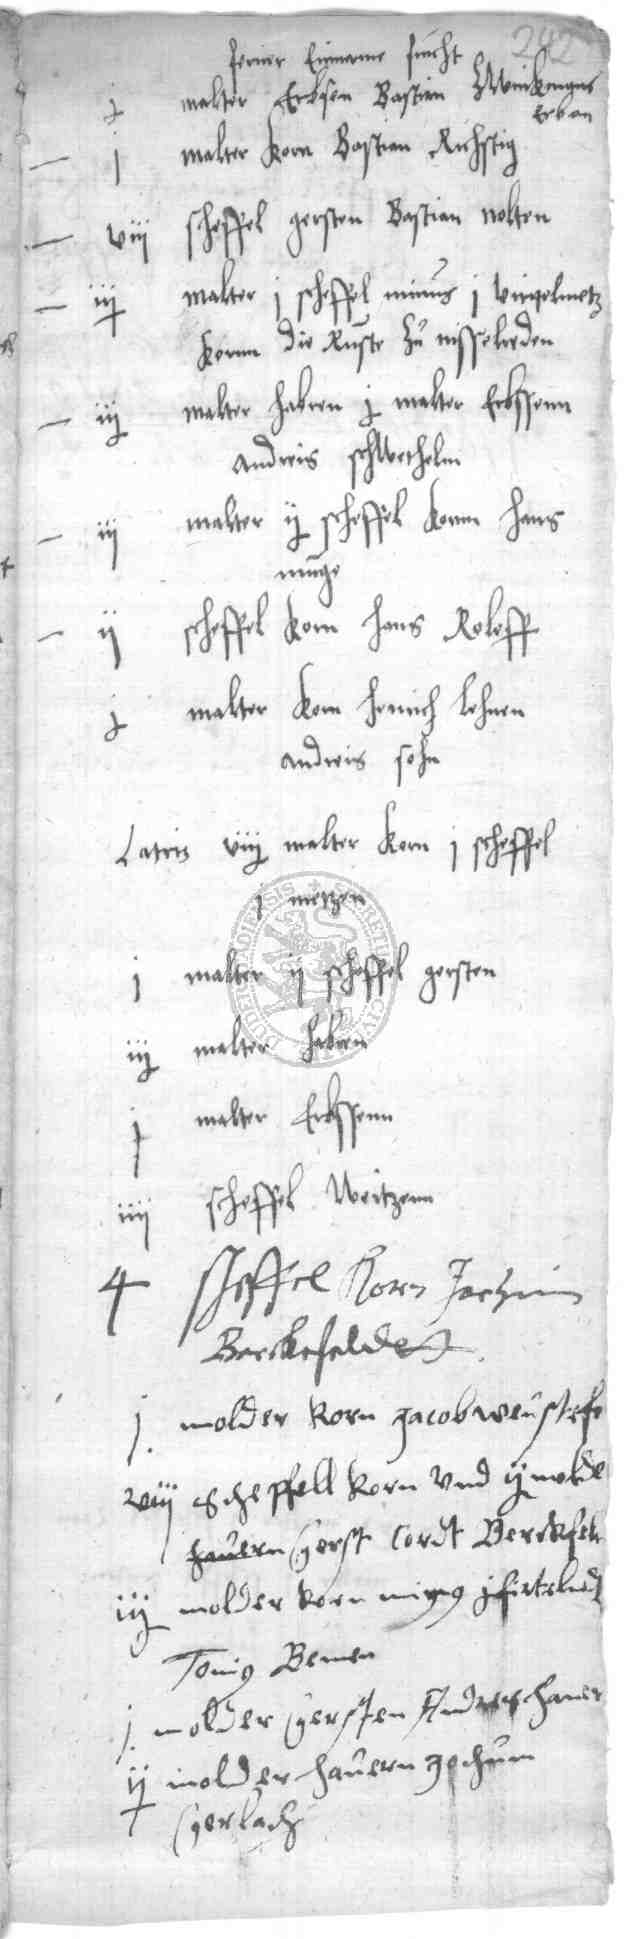 242
ferner Einname frucht
j malter Erbsen Bastian
Erben
j malter korn Bastian Richstig
viij scheffel gersten Bastian nolten
iij malter j scheffel minus j virtelmetz
kornn die Ruste zu
iij malter habern j malter Erbssenn
Andreis schwethelm
iij malter ij scheffel kornn hans
ij scheffel korn hans Roloff
j malter korn henrich lehnen
andreis sohn
Latris viij malter korn j scheffel
j metzen
j malter ij scheffel gersten
iij malter habern
j malter Erbssenn
iiij scheffel Weitzenn
4 scheffel Korn Jochim
Berckefeldes
j molder korn Jacob
viij scheffell korn vnd ij molde
hauern gerst Cordt Berckfelt
iij molder korn minus j firtel
Tonig Bemen
j molder gersten Andres haner
ij molder hauern Jochum
gerlach